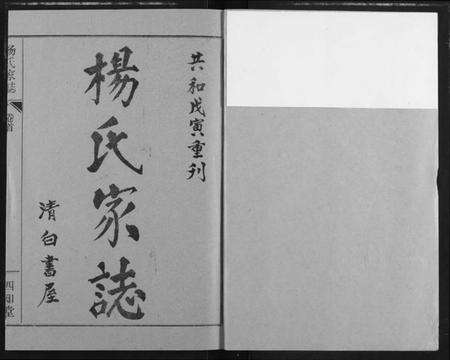 共和戊寅重刊
楊氏家誌
清白書屋
杨氏家誌
卷首
四知堂